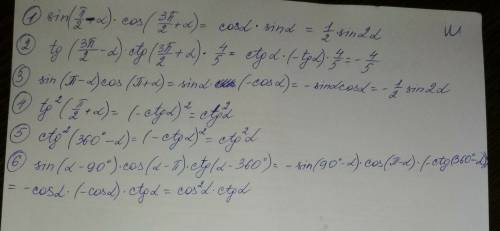 ① sin(π/2 - α) · cos(3π/2 + α) = cosα · sinα = 1/2 sin2α
② tg(3π/2 - α) ctg(3π/2 + α) · 4/5 = ctgα · (-tgα) · 4/5 = - 4/5
③ sin(π-α) cos(π+α) = sinα (-cosα) = -sinα cosα = - 1/2 sin 2α
④ tg²(π/2 + α) = (-ctgα)² = ctg²α
⑤ ctg²(360° - α) = (-ctgα)² = ctg²α
⑥ sin(α-90°) · cos(α-π) · ctg(α-360°) = - sin(90°-α) · cos(π-α) · (-ctg(360°-α))
= -cosα · (-cosα) · ctgα = cos²α · ctgα